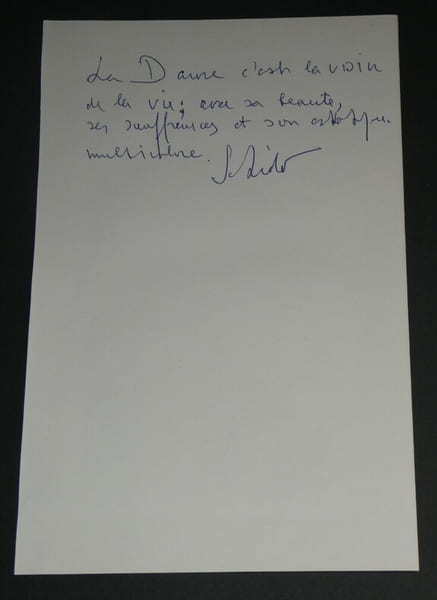 La Danse c'est la voix
de la vie; avec sa beauté,
ses souffrances et son
multicolore. S. Lidor